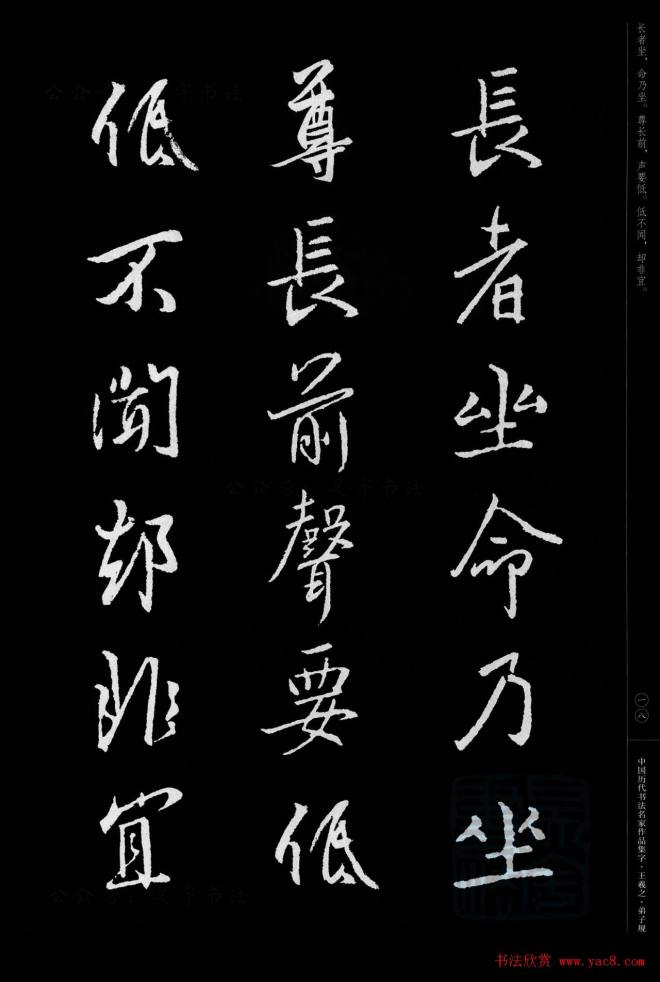 長者坐命乃坐
尊長前聲要低
低不聞却非宜
长者坐，命乃坐。尊长前，声要低。低不闻，却非宜。
一八
中国历代书法名家作品集字·王羲之·弟子规
书法欣赏 www.yac8.com